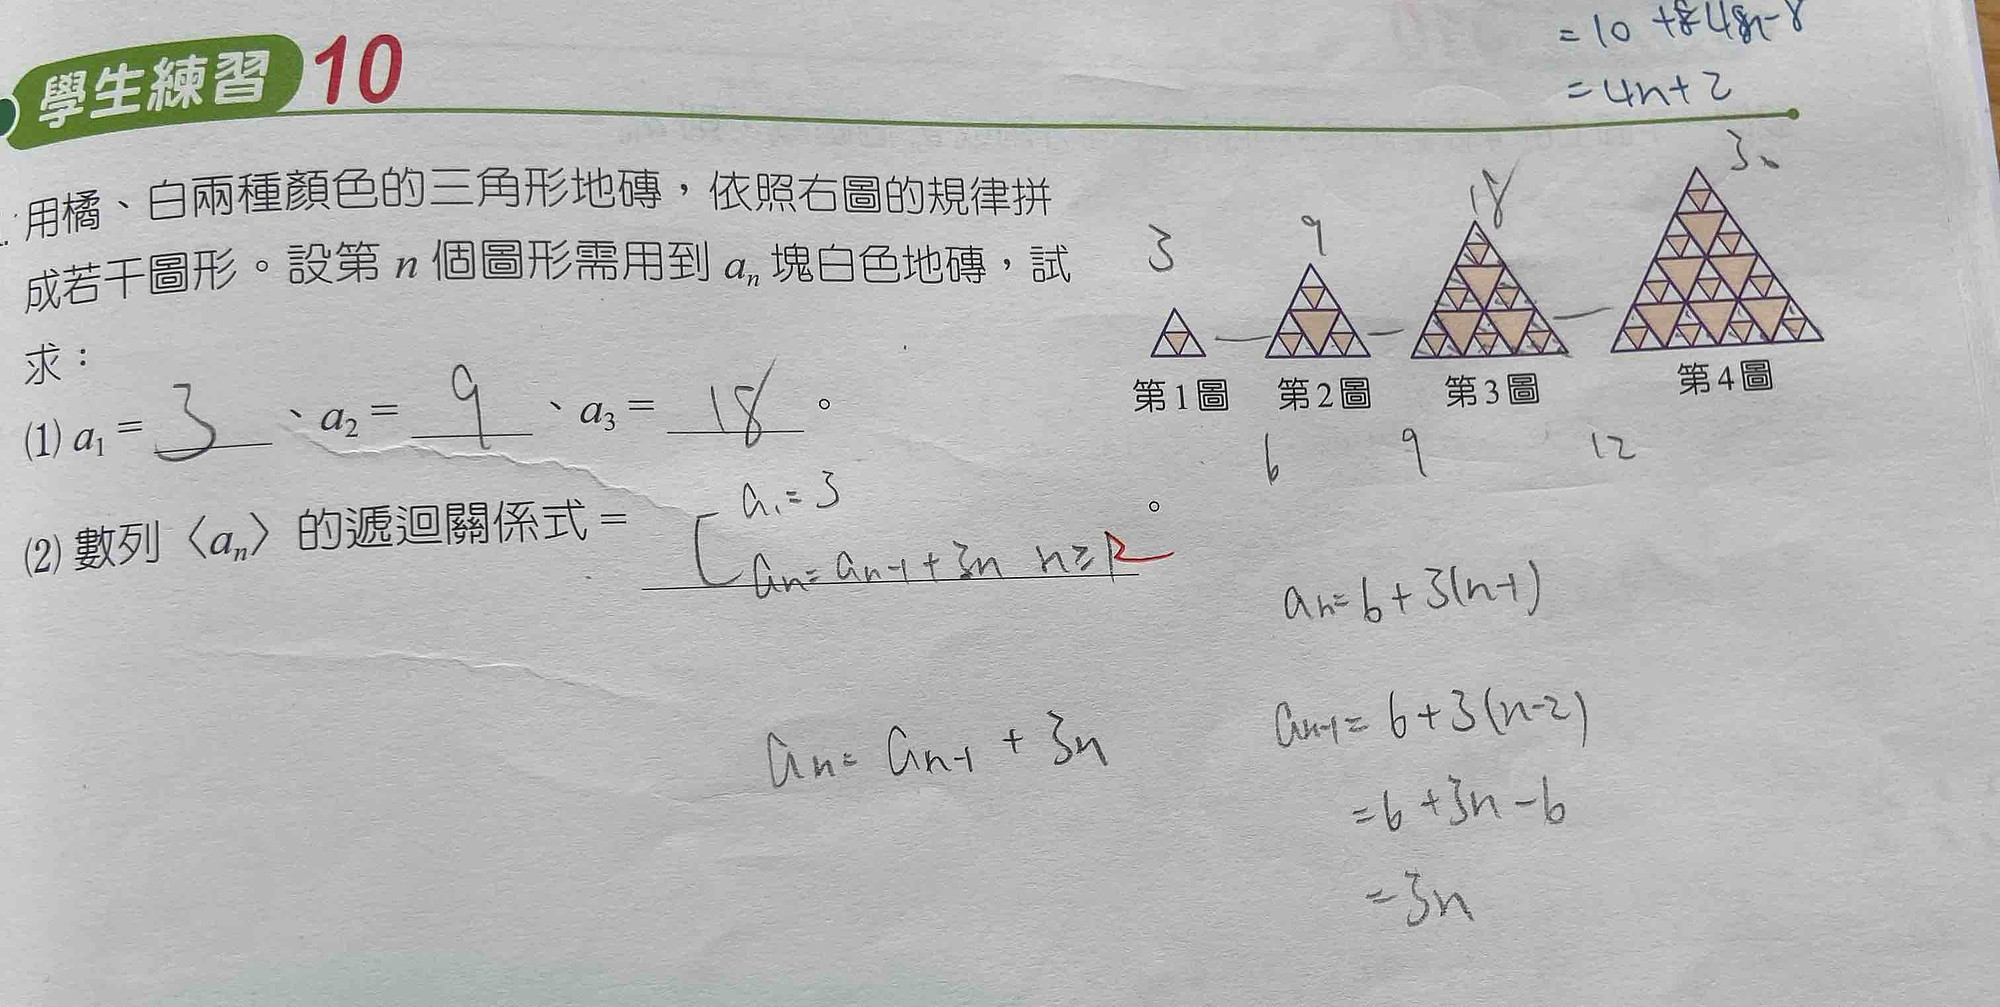 = 10 + 4n - 8
= 4n + 2
學生練習 10
用橘、白兩種顏色的三角形地磚，依照右圖的規律拼
成若干圖形。設第 n 個圖形需用到 aₙ 塊白色地磚，試
求：
3 9 18 30
第1圖 第2圖 第3圖 第4圖
6 9 12
(1) a₁ = 3 、a₂ = 9 、a₃ = 18 。
(2) 數列〈aₙ〉的遞迴關係式 =
a₁ = 3
aₙ = aₙ₋₁ + 3n n ≥ 2 。
aₙ = 6 + 3(n-1)
aₙ₋₁ = 6 + 3(n-2)
= 6 + 3n - 6
= 3n
aₙ = aₙ₋₁ + 3n